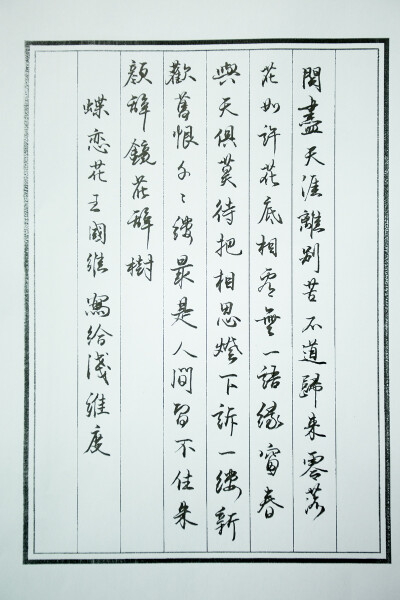 閱盡天涯離別苦不道歸来零落
花如許花底相看無一語綠窗春
與天俱莫待把相思燈下訴一縷新
歡舊恨千〻縷最是人間留不住朱
顏辭鏡花辭樹
蝶恋花王國維寫給淺維度